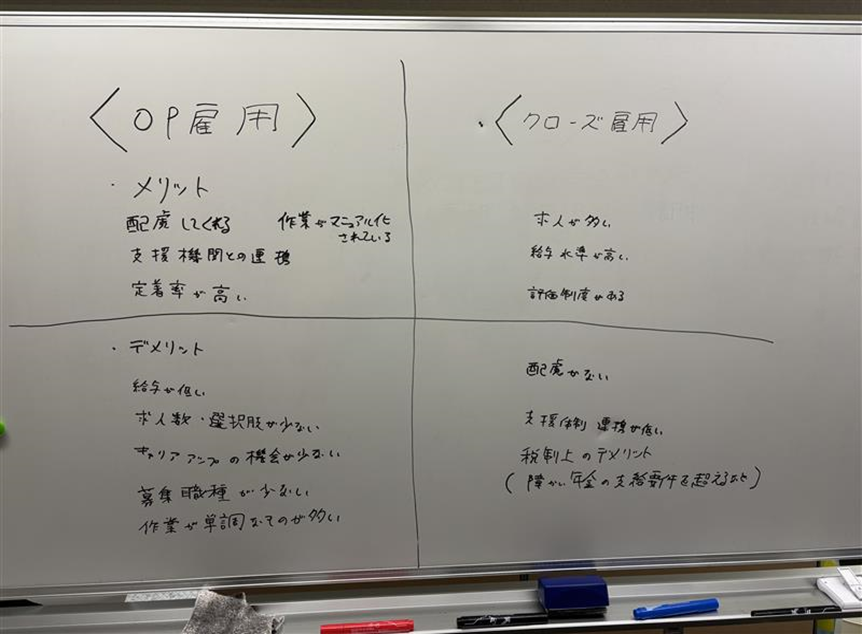 〈OP雇用〉
・メリット
配慮してくれる
作業がマニュアル化
されている
支援機関との連携
定着率が高い
・〈クローズ雇用〉
求人が多い
給与水準が高い
評価制度がある
・デメリット
給与が低い
求人数・選択肢が少ない
キャリアアップの機会が少ない
募集職種が少ない
作業が単調なものが多い
配慮がない
支援体制 連携が低い
税制上のデメリット
(障がい年金の支給要件を超えるなど)